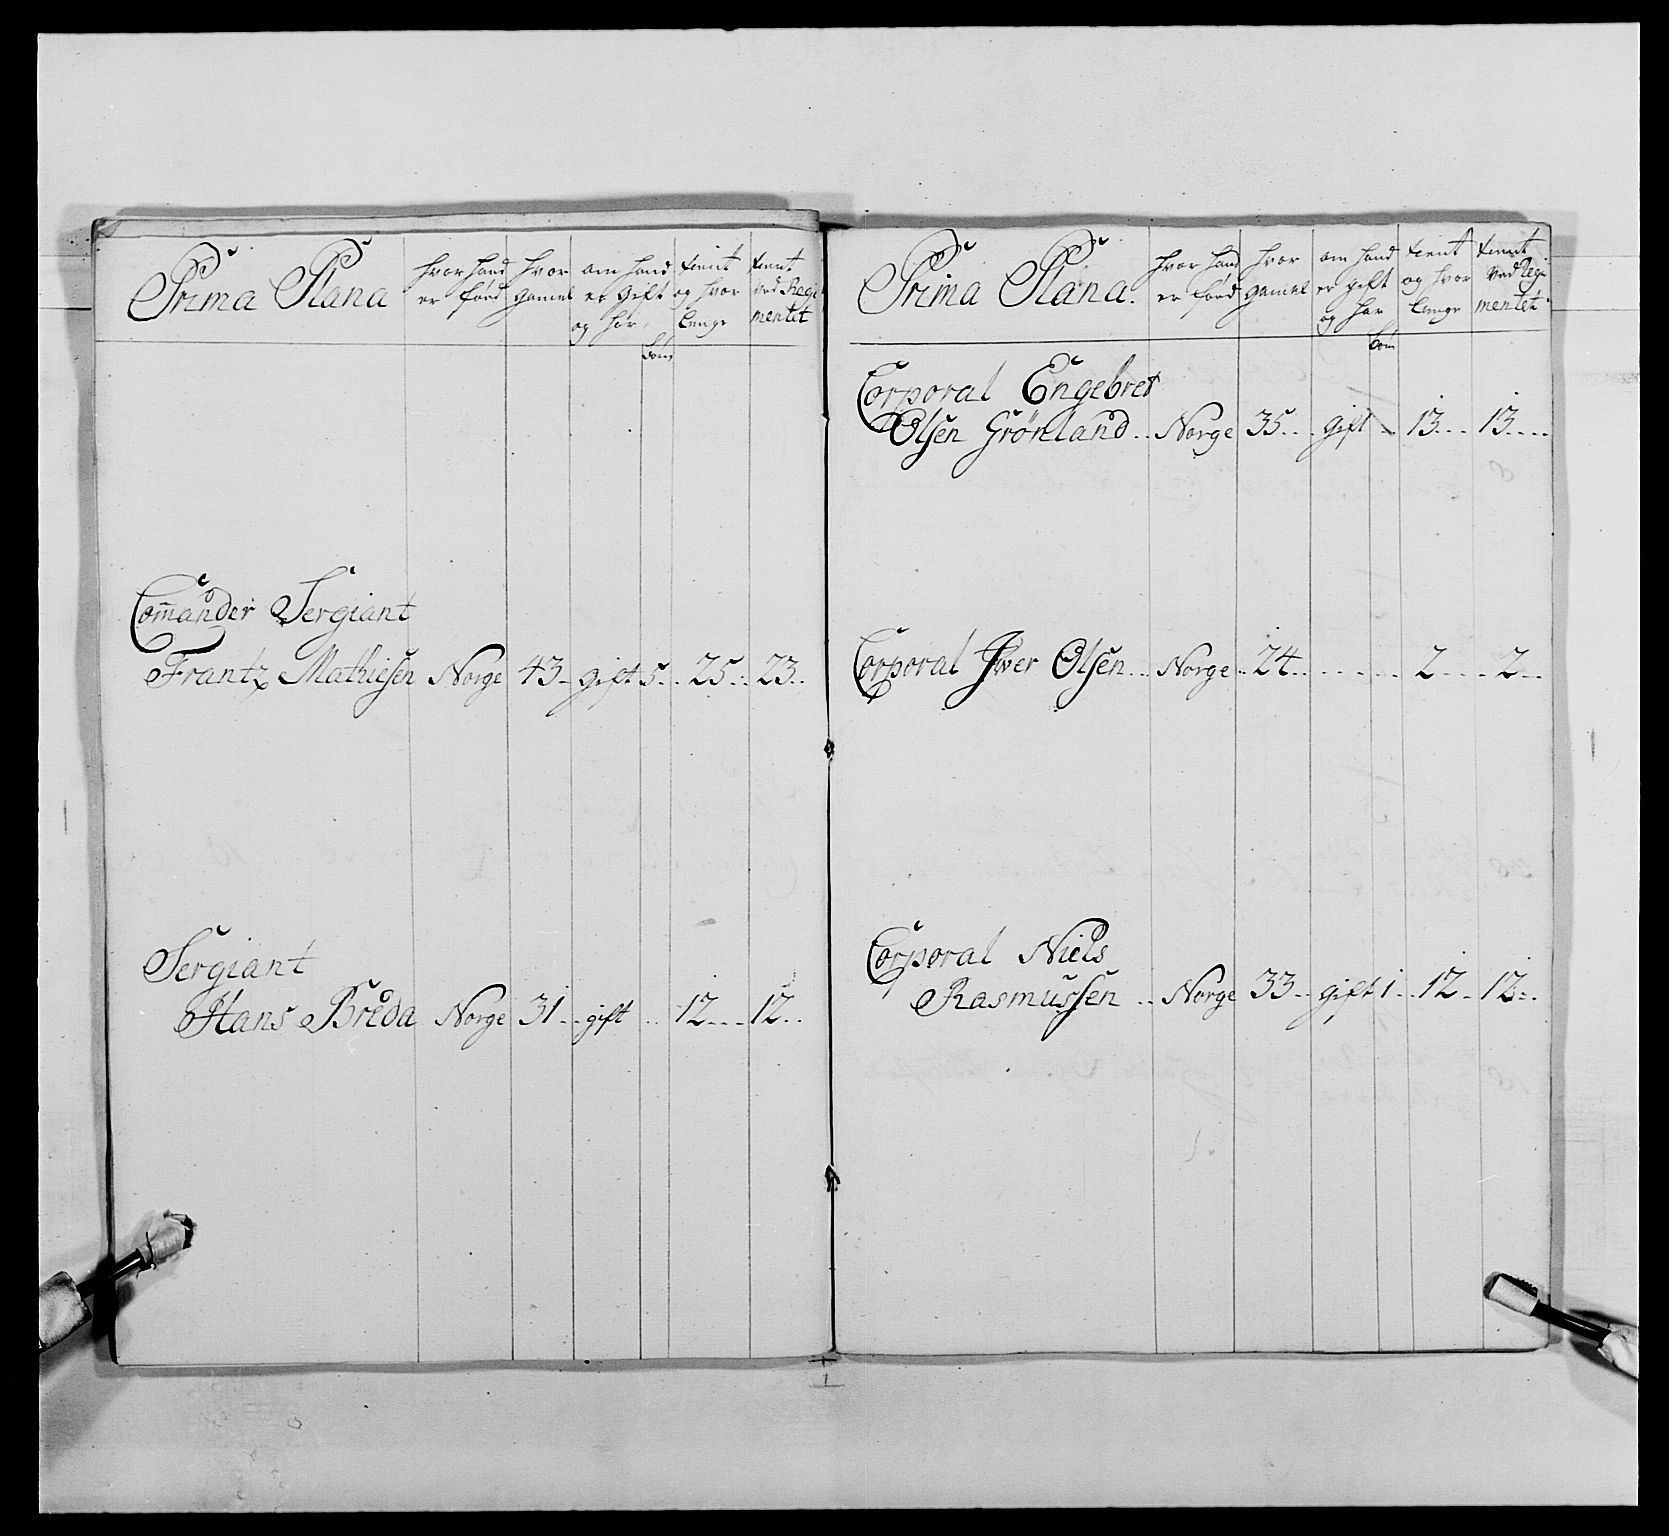 Prima Plana
hvor hand er född
hvor gamel
om hand er gift og har börn
tient og hvor lenge
tient ved Regimentet
Comander Sergiant
Frantz Mathiesen Norge 43 gift 5 25 23
Sergiant
Hans Breda Norge 31 gift 12 12
Prima Plana
hvor hand er född
hvor gamel
om hand er gift og har börn
tient og hvor lenge
tient ved Regimentet
Corporal Engebret
Olsen Grönland Norge 35 gift 13 13
Corporal Iwer Olsen Norge 24 2 2
Corporal Niels
Rasmussen Norge 33 gift 1 12 12